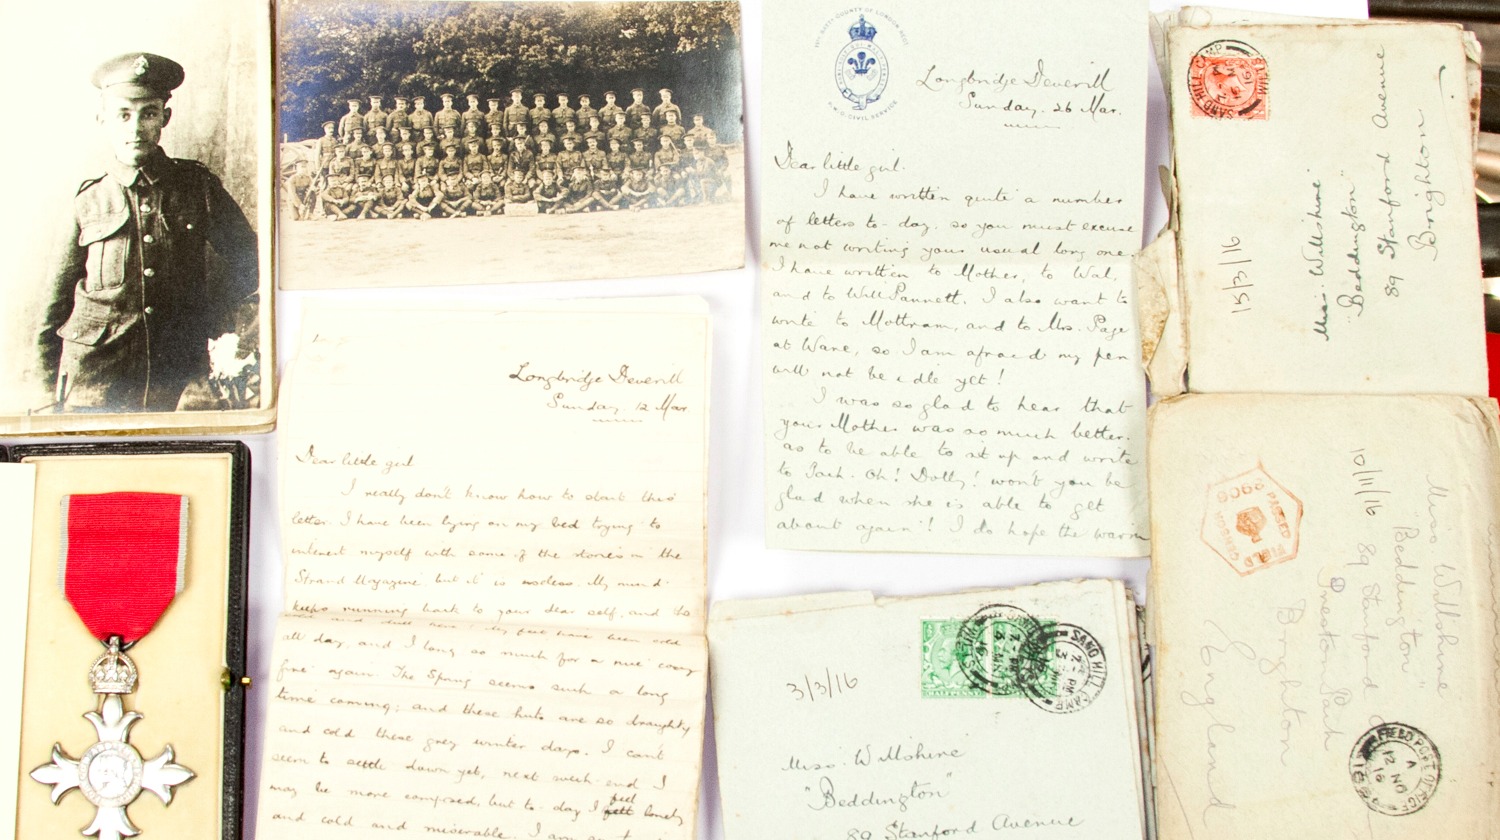 Longbridge Deverill
Sunday. 26 Mar.
Dear little girl.
I have written quite a number
of letters to-day. so you must excuse
me not writing your usual long one.
I have written to Mother, to Wal,
and to Will Pannett. I also want to
write to Mottram, and to Mrs. Page
at Ware, so I am afraid my pen
will not be idle yet!
I was so glad to hear that
your Mother was so much better.
as to be able to sit up and write
to Jack. Oh! Dolly! won't you be
glad when she is able to get
about again! I do hope the warm
Longbridge Deverill
Sunday 12 Mar.
Dear little girl
I really don't know how to start this
letter. I have been lying on my bed trying to
interest myself with some of the stories in the
Strand Magazine but it is useless. My mind
keeps running back to your dear self, and the
all day, and I long so much for a nice cosy
fire again. The Spring seems such a long
time coming; and these huts are so draughty
and cold these grey winter days. I can't
seem to settle down yet, next week-end I
may be more composed, but to-day I feel lonely
and cold and miserable. I am
SAND HILL CAMP
15/3/16
Miss. Willshire
"Beddington"
89 Stanford Avenue
Brighton
3/3/16
HALFPENNY
SAND HILL CAMP
Miss. Willshire
"Beddington"
89 Stanford Avenue
PASSED
FIELD CENSOR
2906
10/11/16
Miss Willshire
"Beddington"
89 Stanford
Preston Park
Brighton
England
FIELD POST OFFICE
A
12 NO
16